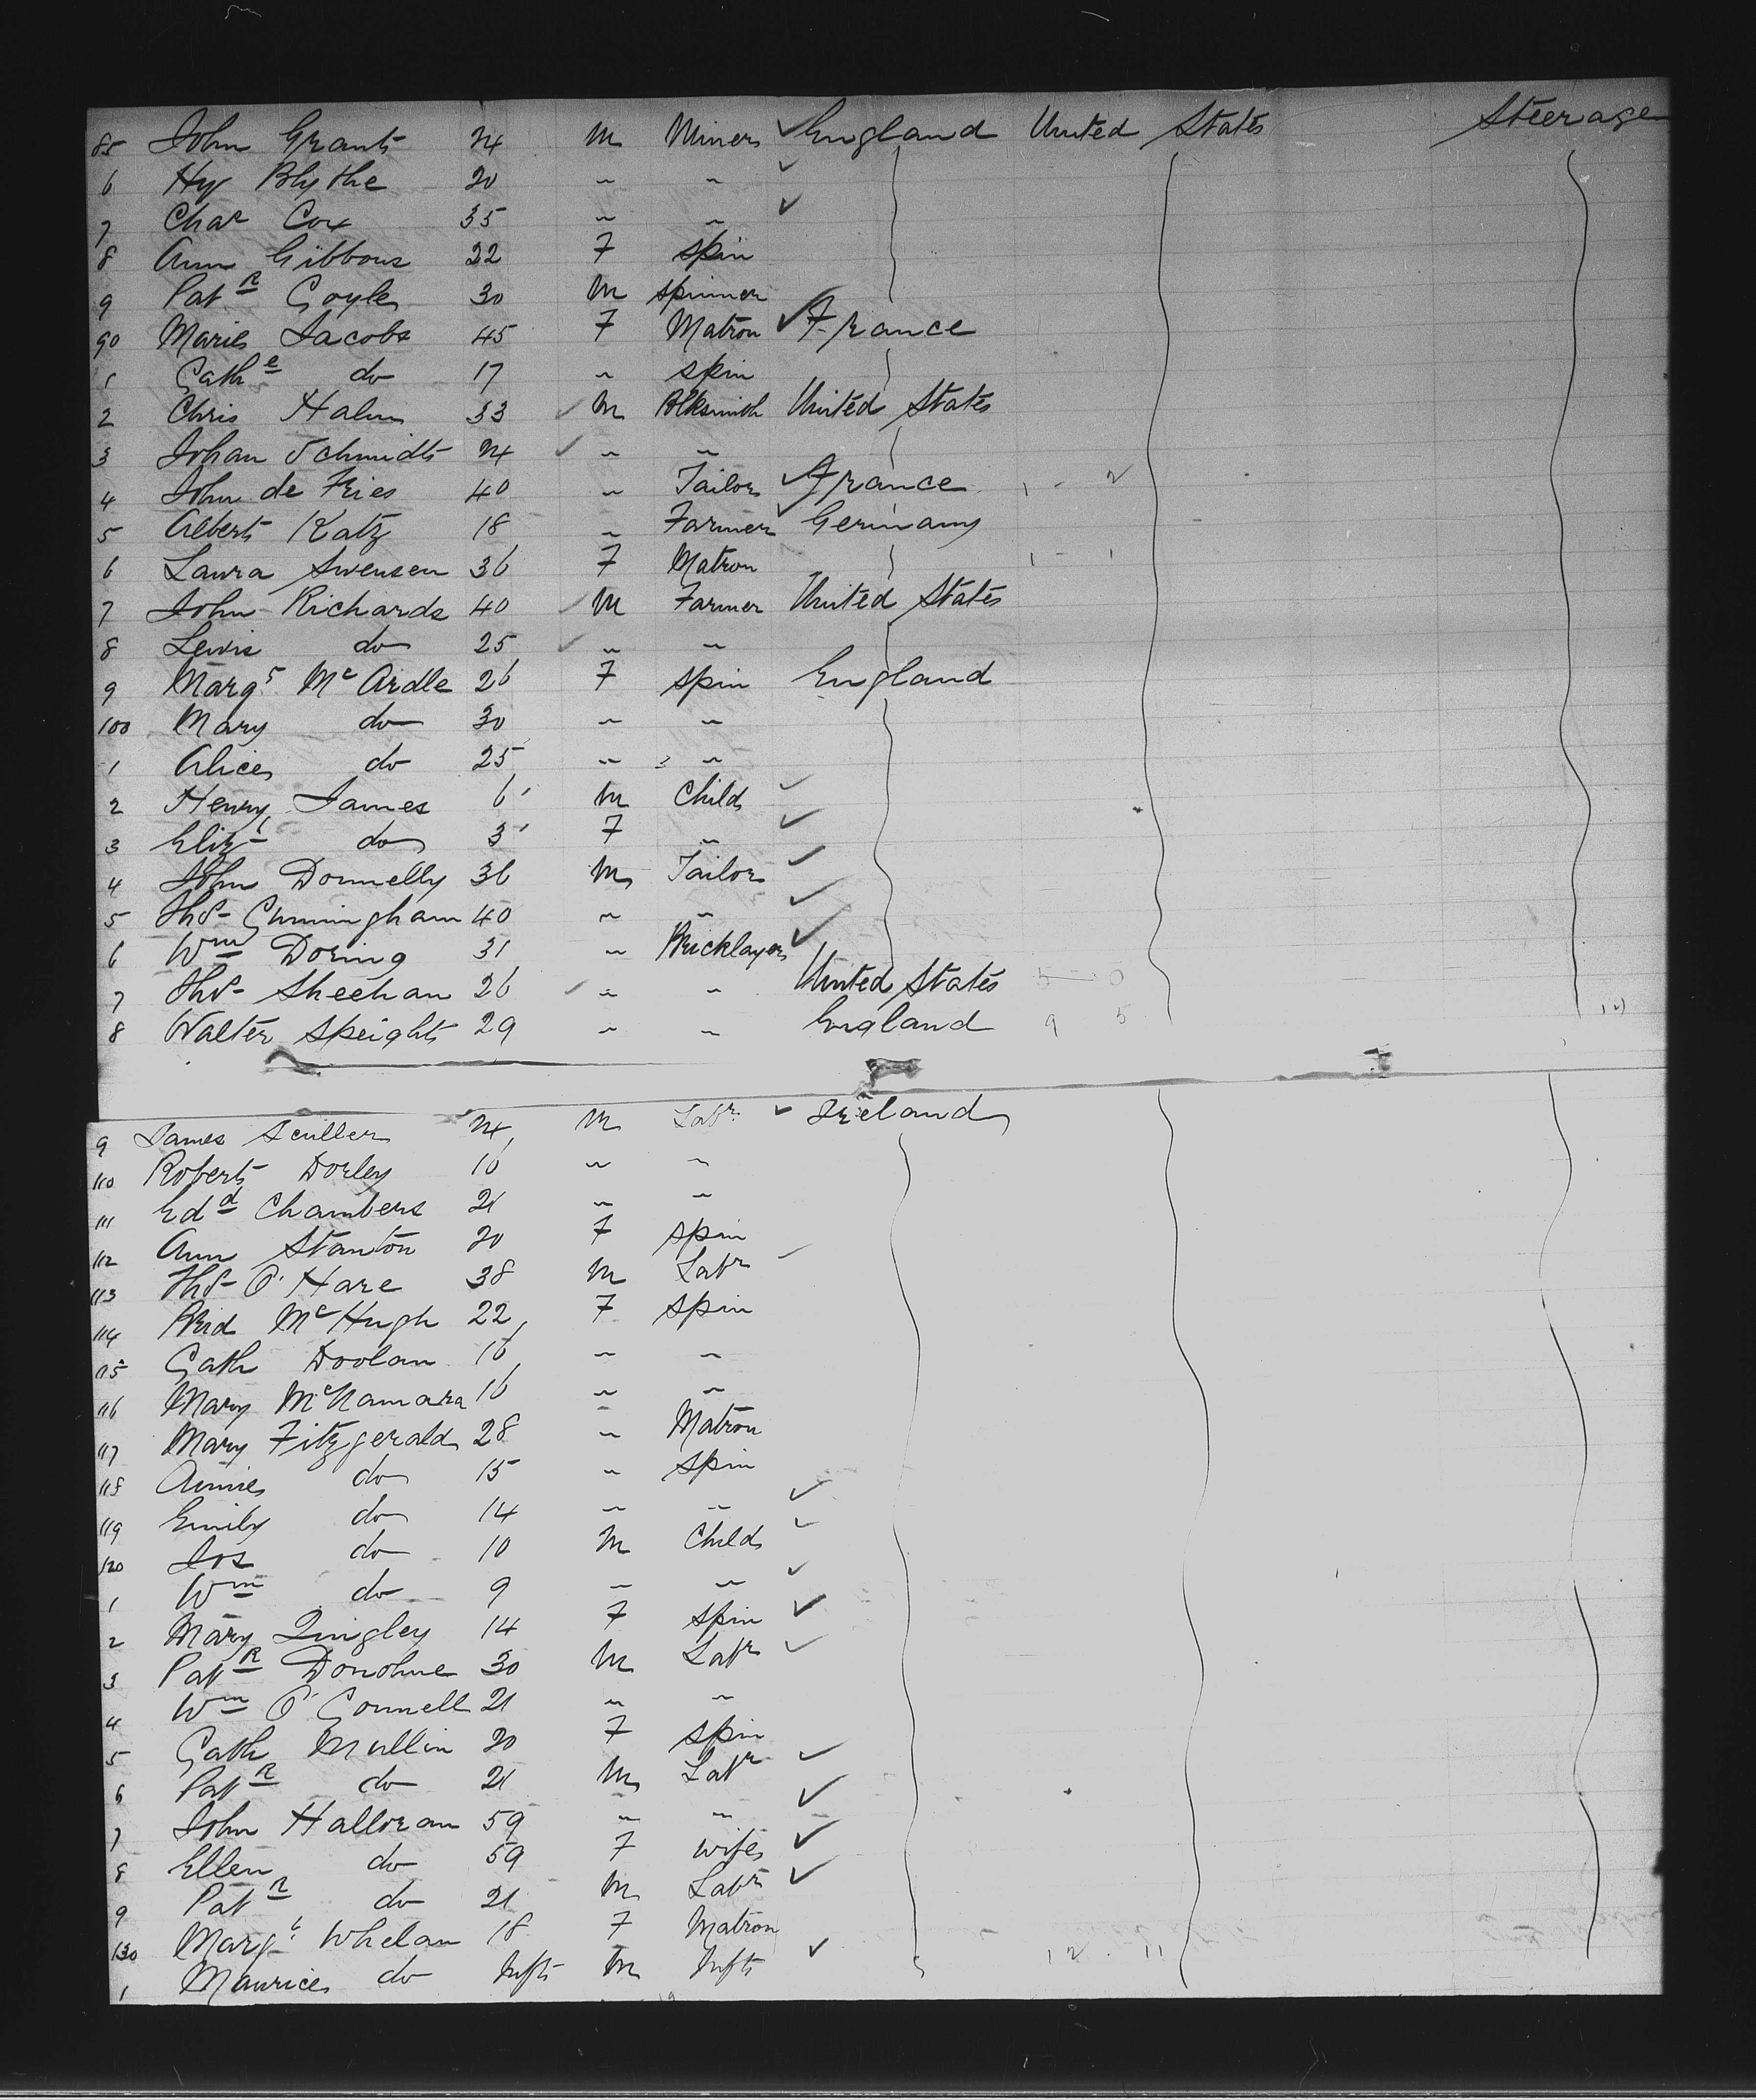 85 John Grant 24 M Miner England United States Steerage
6 Hy Blythe 20 " "
7 Chas Cox 35 " "
8 Ann Gibbons 22 F Spin
9 Patk Coyle 30 M Spinner
90 Marie Jacobs 45 F Matron France
1 Cathe do 17 " Spin
2 Chris Halm 33 M Blksmith United States
3 Johan Schmidt 24 " "
4 John de Fries 40 " Tailor France
5 Albert Katz 18 " Farmer Germany
6 Laura Swensen 36 F Matron
7 John Richards 40 M Farmer United States
8 Lewis do 25 " "
9 Margt McArdle 26 F Spin England
100 Mary do 30 " "
1 Alice do 25 " "
2 Henry James 6 M Child
3 Elizth do 3 F "
4 John Donnelly 36 M Tailor
5 Thos Cunningham 40 " "
6 Wm Doring 31 " Bricklayer
7 Thos Sheehan 26 " " United States
8 Walter Speight 29 " " England 9 5
9 James Sculler 24 M Labr Ireland
110 Robert Dorley 16 " "
111 Edd Chambers 21 " "
112 Ann Stanton 20 F Spin
113 Thos O'Hare 38 M Labr
114 Brid McHugh 22 F Spin
115 Cath Doolan 16 " "
116 Mary McNamara 16 " "
117 Mary Fitzgerald 28 " Matron
118 Annie do 15 " Spin
119 Emily do 14 " "
120 Jos do 10 M Child
1 Wm do 9 " "
2 Mary Quigley 14 F Spin
3 Patk Donohue 30 M Labr
4 Wm O'Connell 21 " "
5 Cath Mullin 20 F Spin
6 Patk do 21 M Labr
7 John Halloran 59 " "
8 Ellen do 59 F Wife
9 Patk do 21 M Labr
130 Margt Whelan 18 F Matron 12 11
1 Maurice do Inft M Inft